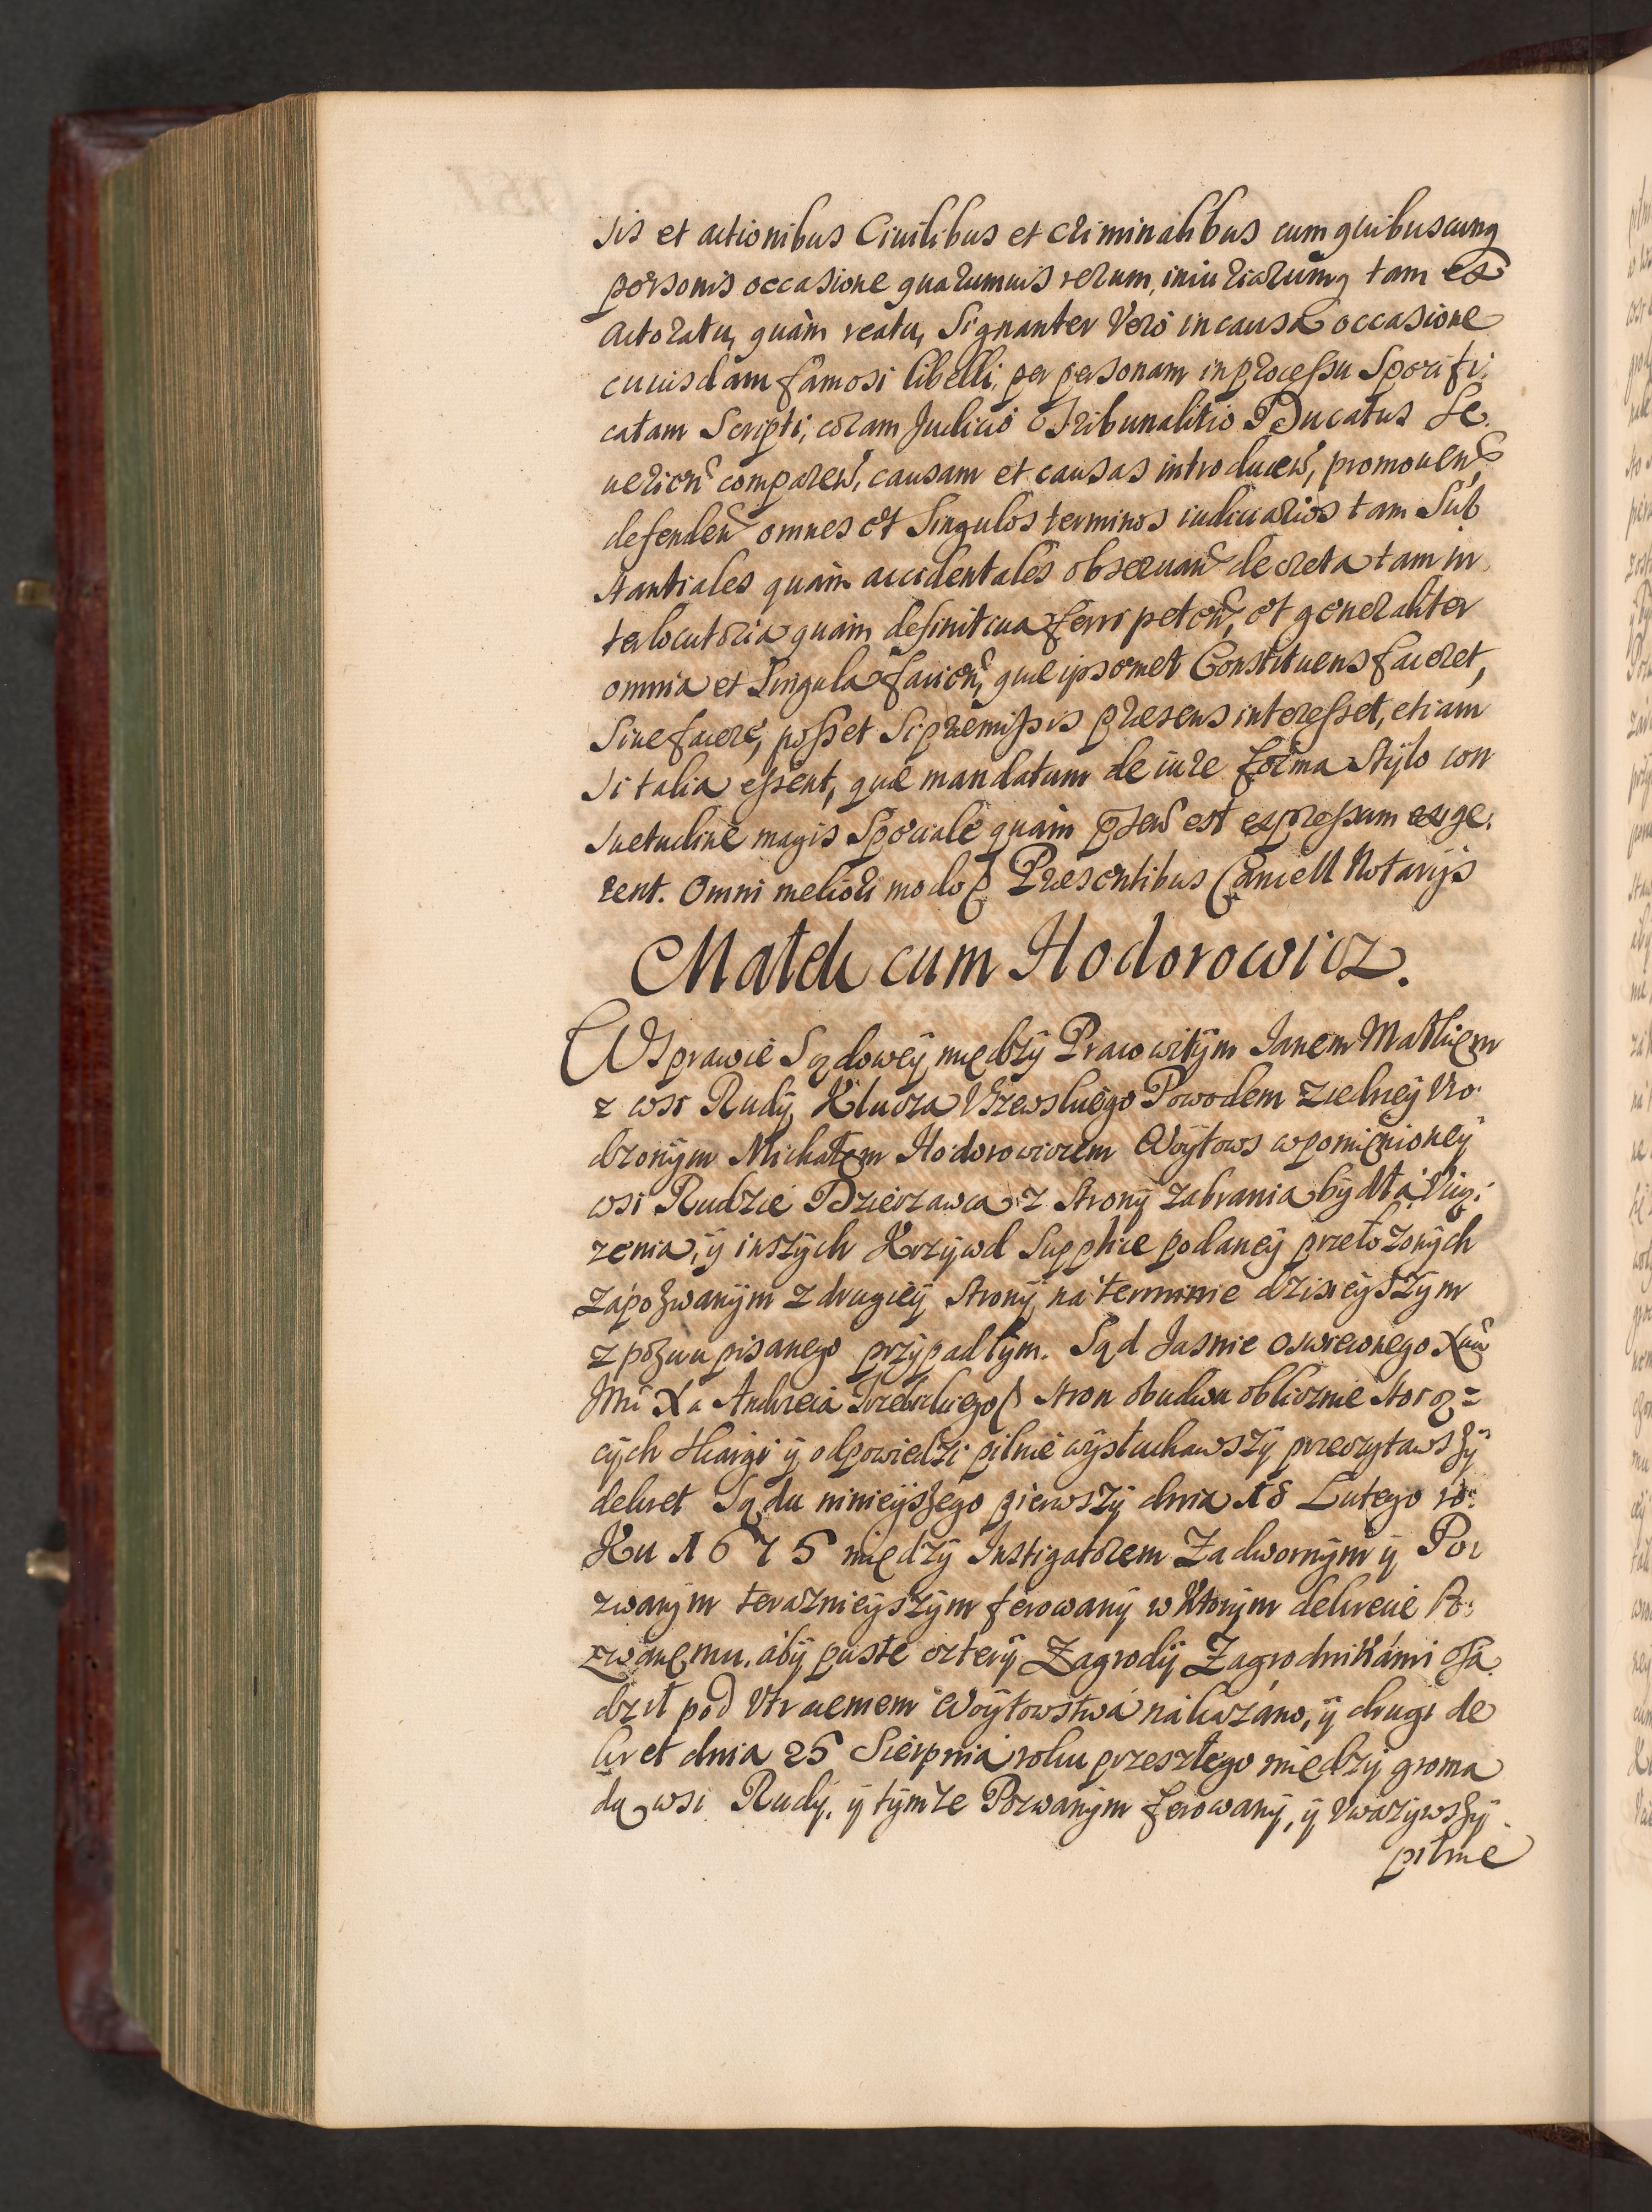 sis et actionibus Ciuilibus et criminalibus cum quibuscunq
personis occasione quarumuis rerum, iniuriarumq tam ex
actoratu, quàm reatu, Signanter Verò in causa occasione
cuiusdam famosi libelli, per personam in processu Specifi:
catam Scripti, coram Judicio Tribunalitio Ducatus Se:
uerien comparen, causam et causas introducen, promouen,
defenden omnes et Singulos terminos iudiciarios tam Sub
stantiales quàm accidentales obseruan decreta tam in
terlocutoria quàm definitiua ferri peten, et generaliter
omnia et Singula facien, quæ ipsemet Constituens faceret,
Siue facere, posset Si præmissis præsens interesset, etiam
si talia essent, quæ mandatum de iure forma Stylo con
suetudine magis Speciale quàm psen est expressum exige:
rent. Omni meliori modo Præsentibus Cancell Notarijs
Matek cum Hodorowicz.
W Sprawie Sądowey między Pracowitym Janem Matkiem
z wsi Rudy Klucza Vszewskiego Powodem z iedney Vro:
dzonym Michałem Hodorowiczem Woytows wpomienioney
wsi Rudzie Dzierzawca z Strony zabrania bydłá Vcią:
zenia, y inszych Krzywd Supplice podaney przełozonych
zápozwanym z drugiey Strony ná terminie dzisieyszym
z pozwu pisanego przypadłym. Sąd Jasnie oswieconego Xcia
Jmci Xa Andrzeia Trzebickiego Stron obudwu oblicznie Stoią=
cych Skargi y odpowiedzi pilnie wysłuchawszy przeczytawszy
dekret Sądu ninieyszego pierwszy dnia 18 Lutego ro:
Ku 1675 między Instigatorem Zadwornym y Po:
zwanym teraznieyszym ferowany w Ktorym dekrecie Po:
zwanemu, áby puste cztery Zagrody Zagrodnikámi osa:
dził pod Vtraceniem Woytowstwá nákazáno, y drugi de
kret dnia 25 Sierpniá roku przeszłego między groma
dą wsi Rudy, y tymze Pozwanym ferowany, y Vwazywszy
pilnie